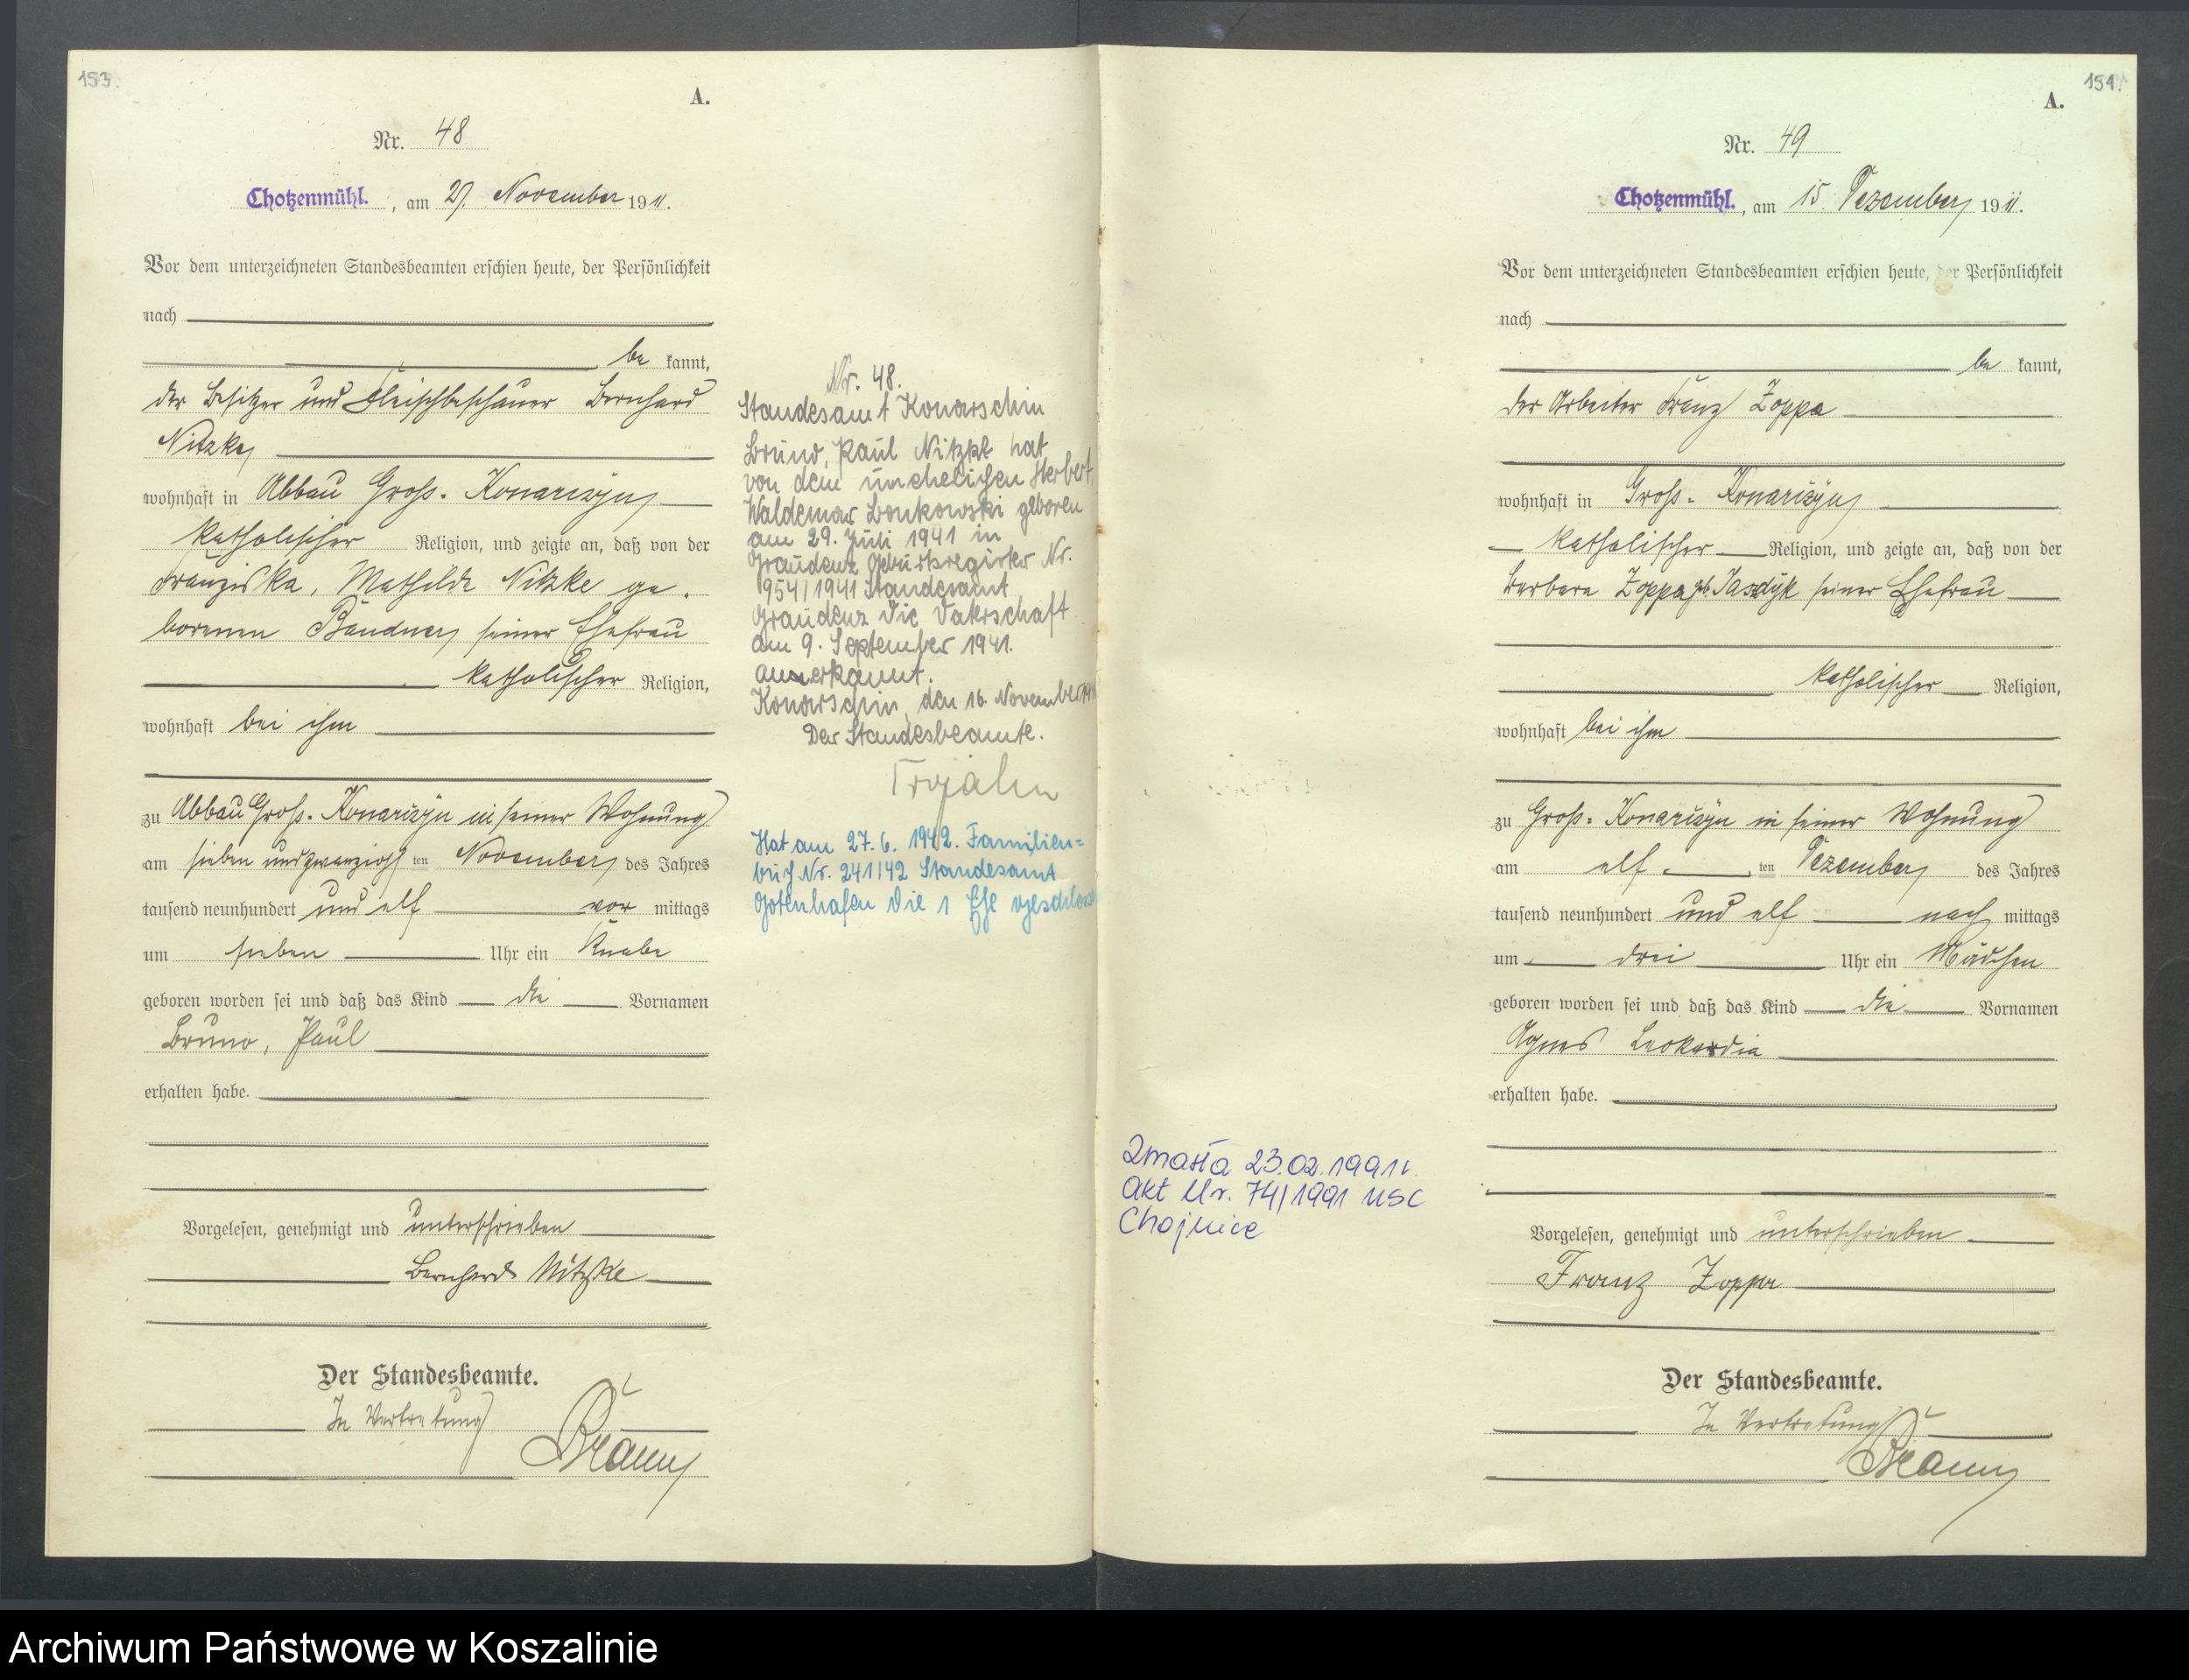 153.
A.
Nr. 48
Chotzenmühl., am 29. November 1911.
Vor dem unterzeichneten Standesbeamten erschien heute, der Persönlichkeit
nach
be kannt,
der Besitzer und Fleischbeschauer Bernhard
Nitzke,
wohnhaft in Abbau Groß-Konarczyn,
katholischer Religion, und zeigte an, daß von der
Franziska, Mathilde Nitzke ge-
borenen seiner Ehefrau
katholischer Religion,
wohnhaft bei ihm
zu Abbau Groß-Konarczyn in seiner Wohnung
am sieben und zwanzigsten November des Jahres
tausend neunhundert und elf vor mittags
um sieben Uhr ein Knabe
geboren worden sei und daß das Kind die Vornamen
Bruno, Paul
erhalten habe.
Vorgelesen, genehmigt und unterschrieben
Bernhard Nitzke
Der Standesbeamte.
In Vertretung
Nr. 48.
Standesamt Konarschin
Bruno, Paul Nitzke hat
von dem unehelichen Herbert,
Waldemar Bonkowski geboren
am 29. Juli 1941 in
Graudenz Geburtsregister Nr.
954/1941 Standesamt
Graudenz die Vaterschaft
am 9. September 1941.
anerkannt.
Konarschin, den 16. November
Der Standesbeamte.
Trojahn
Hat am 27.6.1942. Familien=
buch Nr. 241/42 Standesamt
Gotenhafen die 1 Ehe geschloss
154.
A.
Nr. 49
Chotzenmühl., am 15. Dezember 1911.
Vor dem unterzeichneten Standesbeamten erschien heute, der Persönlichkeit
nach
be kannt,
der Arbeiter Franz Zoppa
wohnhaft in Groß-Konarczyn,
katholischer Religion, und zeigte an, daß von der
Barbara Zoppa geb. Jasdyk seiner Ehefrau
katholischer Religion,
wohnhaft bei ihm
zu Groß-Konarczyn in seiner Wohnung
am elf ten Dezember des Jahres
tausend neunhundert und elf nach mittags
um drei Uhr ein Mädchen
geboren worden sei und daß das Kind die Vornamen
Agnes Leokardia
erhalten habe.
Zmarła 23.02.1991r.
Akt Nr. 74/1991 USC
Chojnice
Vorgelesen, genehmigt und unterschrieben
Franz Zoppa
Der Standesbeamte.
In Vertretung
Archiwum Państwowe w Koszalinie